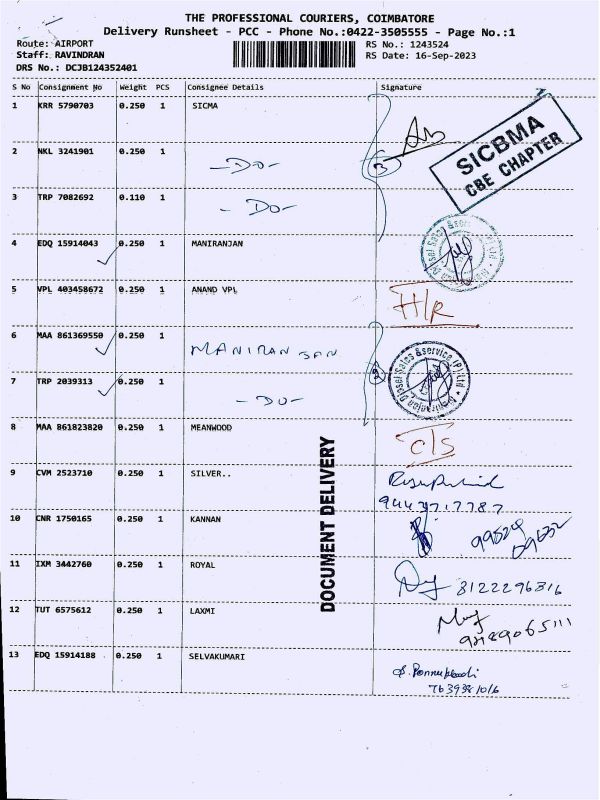 THE PROFESSIONAL COURIERS, COIMBATORE
Delivery Runsheet - PCC - Phone No.:0422-3505555 - Page No.:1
Route: AIRPORT
RS No.: 1243524
Staff: RAVINDRAN
RS Date: 16-Sep-2023
DRS No.: DCJB124352401
S No Consignment No Weight PCS Consignee Details Signature
1 KRR 5790703 0.250 1 SICMA
SICBMA
CBE CHAPTER
2 NKL 3241901 0.250 1 - Do -
3
3 TRP 7082692 0.110 1 - Do -
4 EDQ 15914043 0.250 1 MANIRANJAN
Diesel Sales &service (P) Ltd
5 VPL 403458672 0.250 1 ANAND VPL
H/R
6 MAA 861369550 0.250 1 MANIRAN JAN
Maniranjan Diesel Sales &service (P) Ltd
7 TRP 2039313 0.250 1 - DO -
8 MAA 861823820 0.250 1 MEANWOOD
C/S
DOCUMENT DELIVERY
9 CVM 2523710 0.250 1 SILVER..
9443717787
10 CNR 1750165 0.250 1 KANNAN
11 IXM 3442760 0.250 1 ROYAL
8122296816
12 TUT 6575612 0.250 1 LAXMI
13 EDQ 15914188 0.250 1 SELVAKUMARI